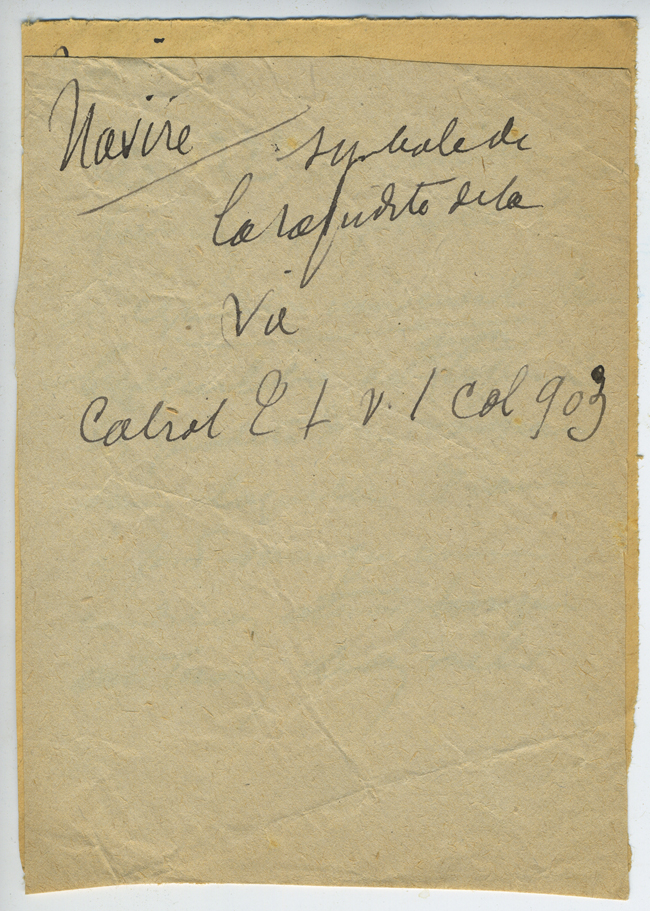 Navire / symbole de
la rapidité de la
vie
Cabrol E t v. 1 col 903